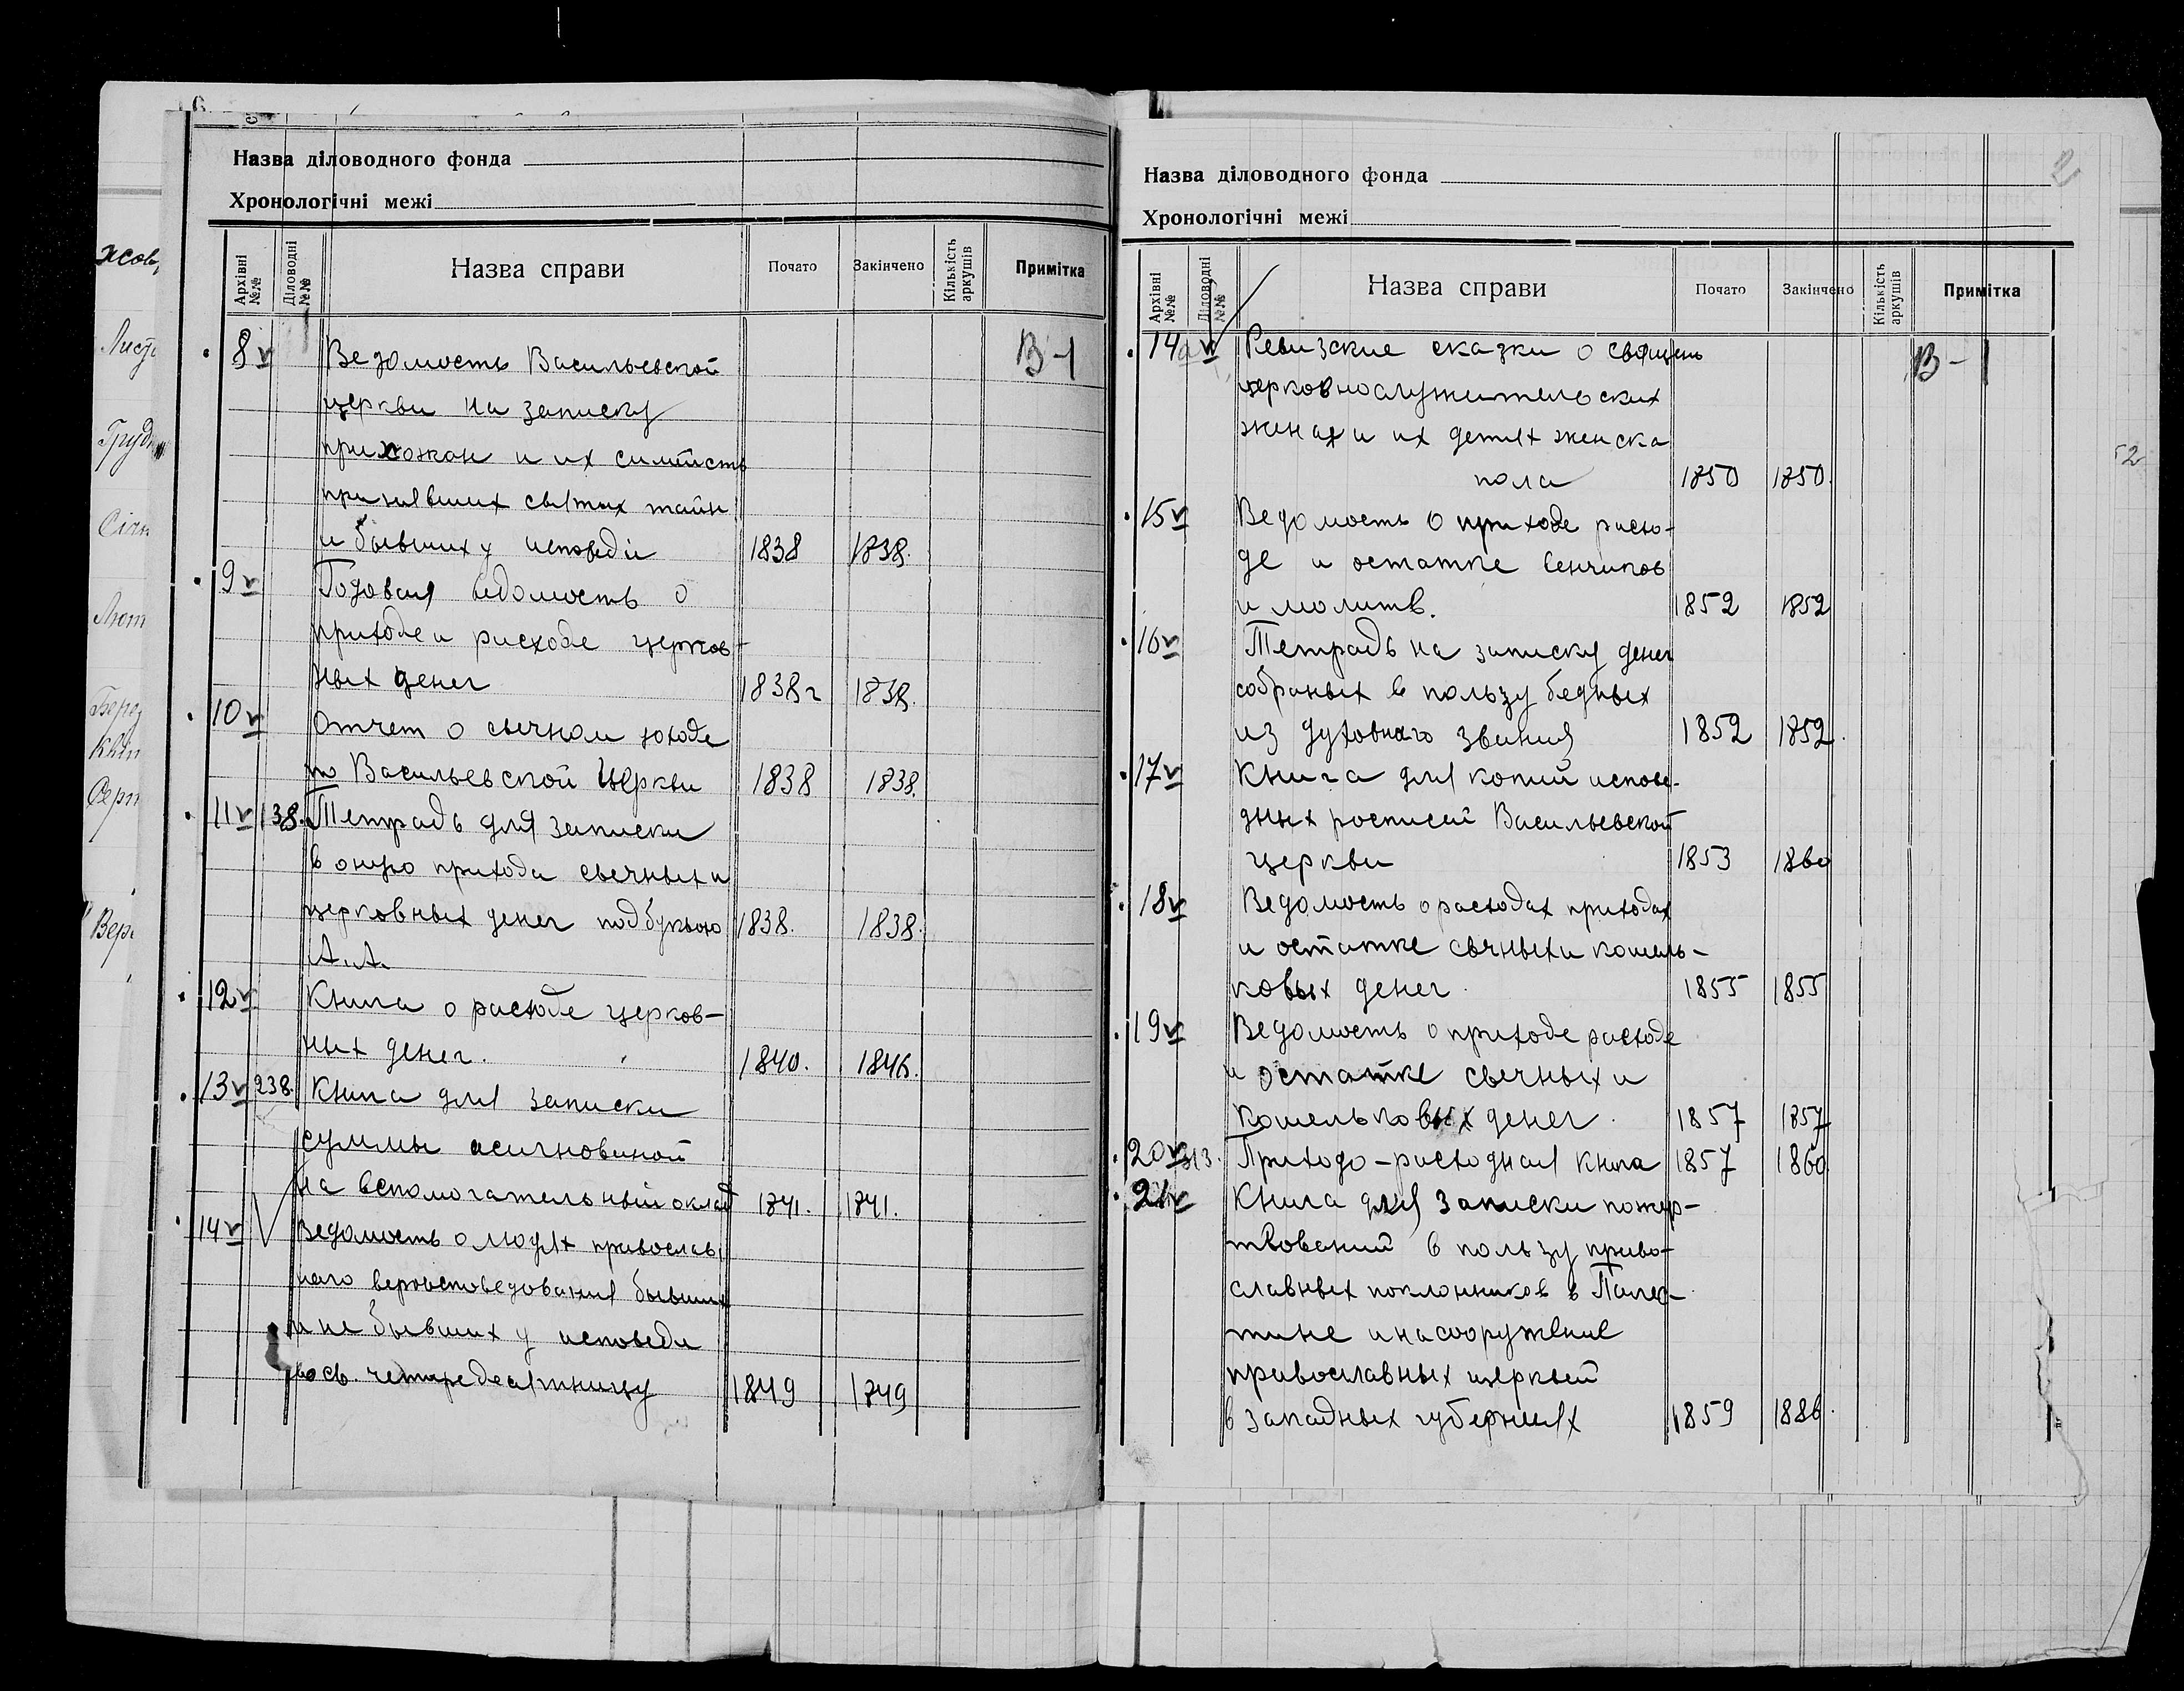 жсов,
Листо
Груд
Січн
Лют
Берез
Квіт
Серп
Вер
Назва діловодного фонда
Хронологічні межі
Архівні №№ Діловодні №№ Назва справи Почато Закінчено Кількість аркушів Примітка
8 Ведомость Васильевской В-1
церкви на записку
прихожан и их симейств
принявших святых тайн
и бывших у исповеди 1838 1838.
9 Годовая ведомость о
приходе и расходе церков-
ных денег 1838 г 1838.
10 Отчет о свечном доходе
по Васильевской Церкви 1838 1838.
11 138. Тетрадь для записки
в оную прихода свечных и
церковных денег под буквою 1838. 1838.
А.А.
12 Книга о расходе церков-
ных денег. 1840. 1846.
13 238. Книга для записки
суммы асигнованой
на вспомогательный оклад 1841. 1841.
14 Ведомость о людях православ
наго вероисповедования бывших
и не бывших у исповеди
во св. четыредесятницу 1849 1849
Назва діловодного фонда 2
Хронологічні межі
Архівні №№ Діловодні №№ Назва справи Почато Закінчено Кількість аркушів Примітка
14а Ревизские сказки о священь В-1
церковнослужительских
женах и их детях женска
пола 1850 1850.
15 Ведомость о приходе расхо-
де и остатке венчиков
и молитв. 1852 1852
16 Тетрадь на записку денег
собраных в пользу бедных
из духовнаго звания 1852 1852.
17 Книга для копий испове-
дных росписей Васильевской
церкви 1853 1860
18 Ведомость о расходах приходах
и остатке свечных и кошель-
ковых денег. 1855 1855
19 Ведомость о приходе расходе
и остатке свечных и
кошельковых денег. 1857 1857
20 313. Приходо-расходная книга 1857 1860
21 Книга для записки пожер-
твований в пользу право-
славных поклонников в Палес-
тине и на сооружение
православных церквей
в западных губерниях 1859 1886.
52